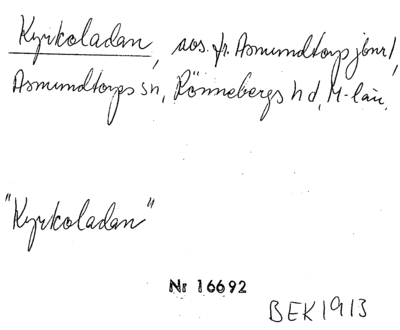 Kyrkoladan, sos. fr. Asmundtorps jbnr 1,
Asmundtorps sn, Rönnebergs hd, M-län.
"Kyrkoladan"
Nr 16692
BEK 1913